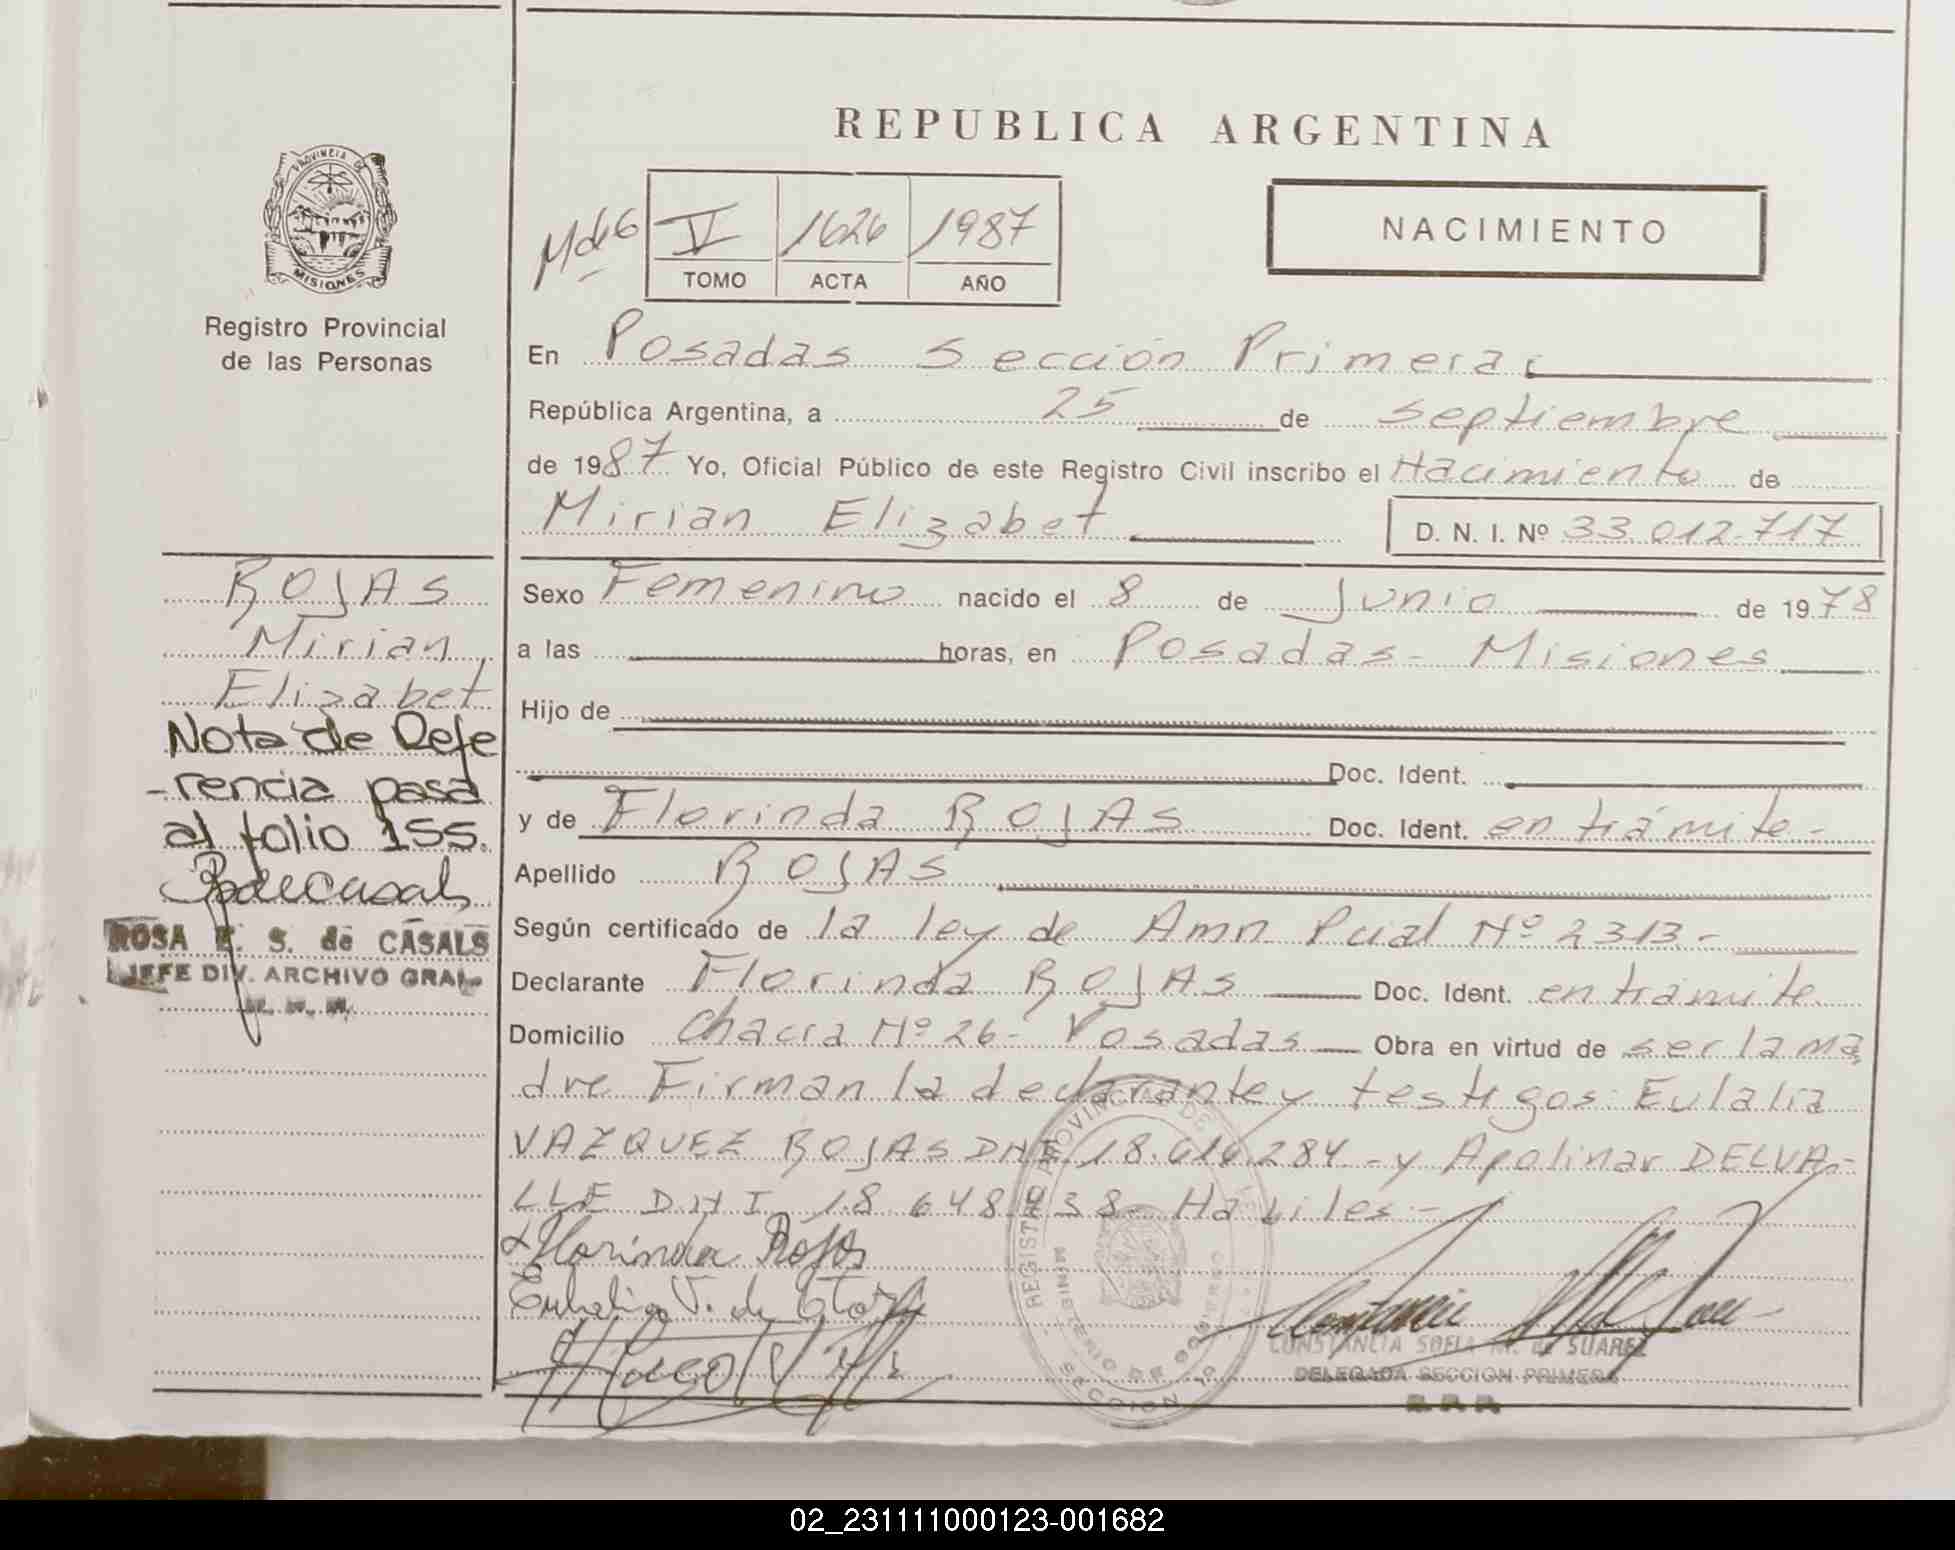 REPUBLICA ARGENTINA
PROVINCIA DE
MISIONES
Registro Provincial
de las Personas
V 1626 1987
TOMO ACTA AÑO
NACIMIENTO
En Posadas Sección Primera
República Argentina, a 25 de septiembre
de 1987 Yo, Oficial Público de este Registro Civil inscribo el Nacimiento de
Mirian Elizabet D. N. I. Nº 33.012.717
ROJAS
Mirian
Elizabet
Nota de Refe
-rencia pasa
al folio 155.
ROSA E. S. de CASALS
JEFE DIV. ARCHIVO GRAL
Sexo Femenino nacido el 8 de Junio de 1978
a las horas, en Posadas - Misiones
Hijo de
Doc. Ident.
y de Florinda ROJAS Doc. Ident. en trámite -
Apellido ROJAS
Según certificado de la ley de Amn Pcial Nº 2313 -
Declarante Florinda ROJAS Doc. Ident. en trámite
Domicilio Chacra Nº 26 - Posadas Obra en virtud de ser la ma
dre Firman la declarante y testigos: Eulalia
VAZQUEZ ROJAS DNI 18.614.284 - y Apolinar DELVA-
LLE DNI 18.648.938 - Habiles -
Florinda Rojas
REGISTRO PROVINCIAL DE
MINISTERIO DE GOBIERNO
SECCION 1º
CONSTANCIA SOFIA M. de SUAREZ
DELEGADA SECCION PRIMERA
R. P. P.
02_231111000123-001682